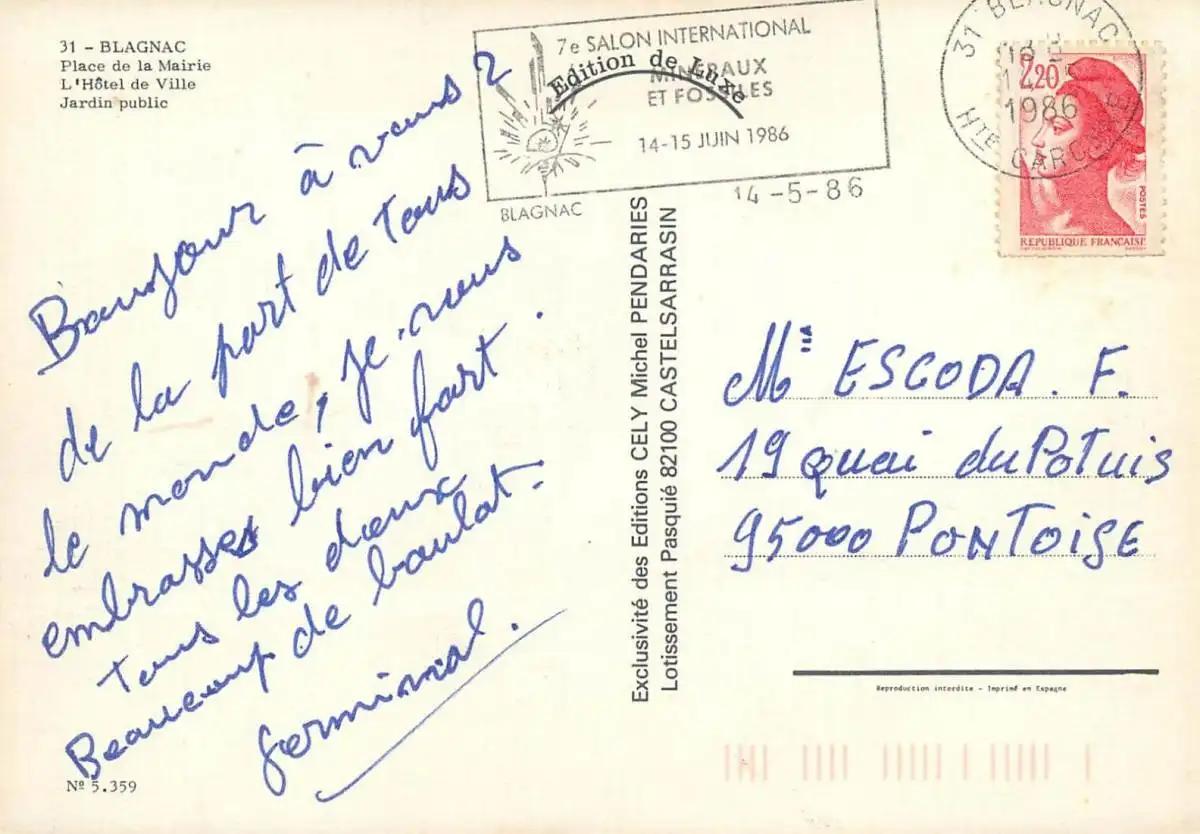 31 - BLAGNAC
Place de la Mairie
L'Hôtel de Ville
Jardin public
7e SALON INTERNATIONAL
MINÉRAUX
ET FOSSILES
14-15 JUIN 1986
BLAGNAC
Edition de Luxe
14-5-86
31 BLAGNAC
1986
HTE GARONNE
2,20
POSTES
REPUBLIQUE FRANCAISE
Bonjour à vous 2
de la part de tous
le monde, je vous
embrasses bien fort.
tous les deux
Beaucoup de boulot.
Germinal.
Nº 5.359
Exclusivité des Editions CELY Michel PENDARIES
Lotissement Pasquié 82100 CASTELSARRASIN
Mlle ESCODA. F.
19 quai du Potuis
95000 PONTOISE
Reproduction interdite - Imprimé en Espagne